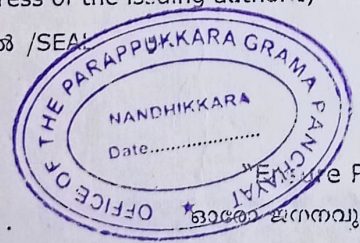 ress of the issuing authority
ൽ /SEAL
OFFICE OF THE PARAPPUKKARA GRAMA PANCHAYAT
NANDHIKKARA
Date....................
ഓരോ ജനനവു